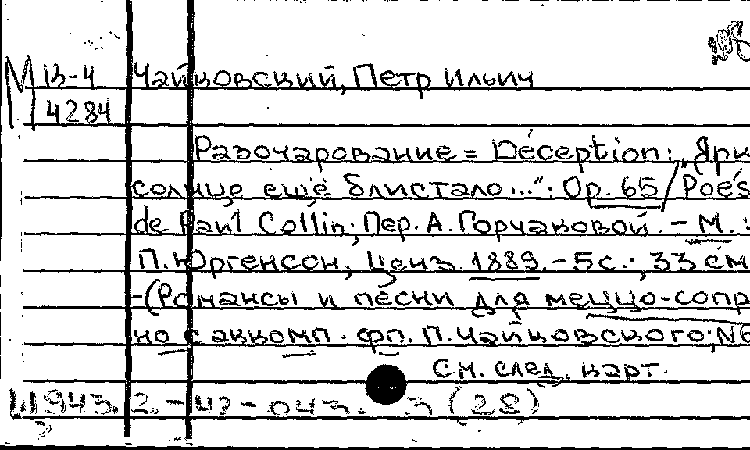 М 13-4 Чайковский, Петр Ильич
4284
Разочарование = Déception: „Ярк
солнце ещё блистало...": Op. 65 / Poés
de Paul Collin; Пер. А. Горчаковой. - М.:
П. Юргенсон, Ценз. 1889. - 5 с.; 33 см
- (Романсы и песни для меццо-сопр
но с аккомп. фп. П. Чайковского; №
См. след. карт.
(28)